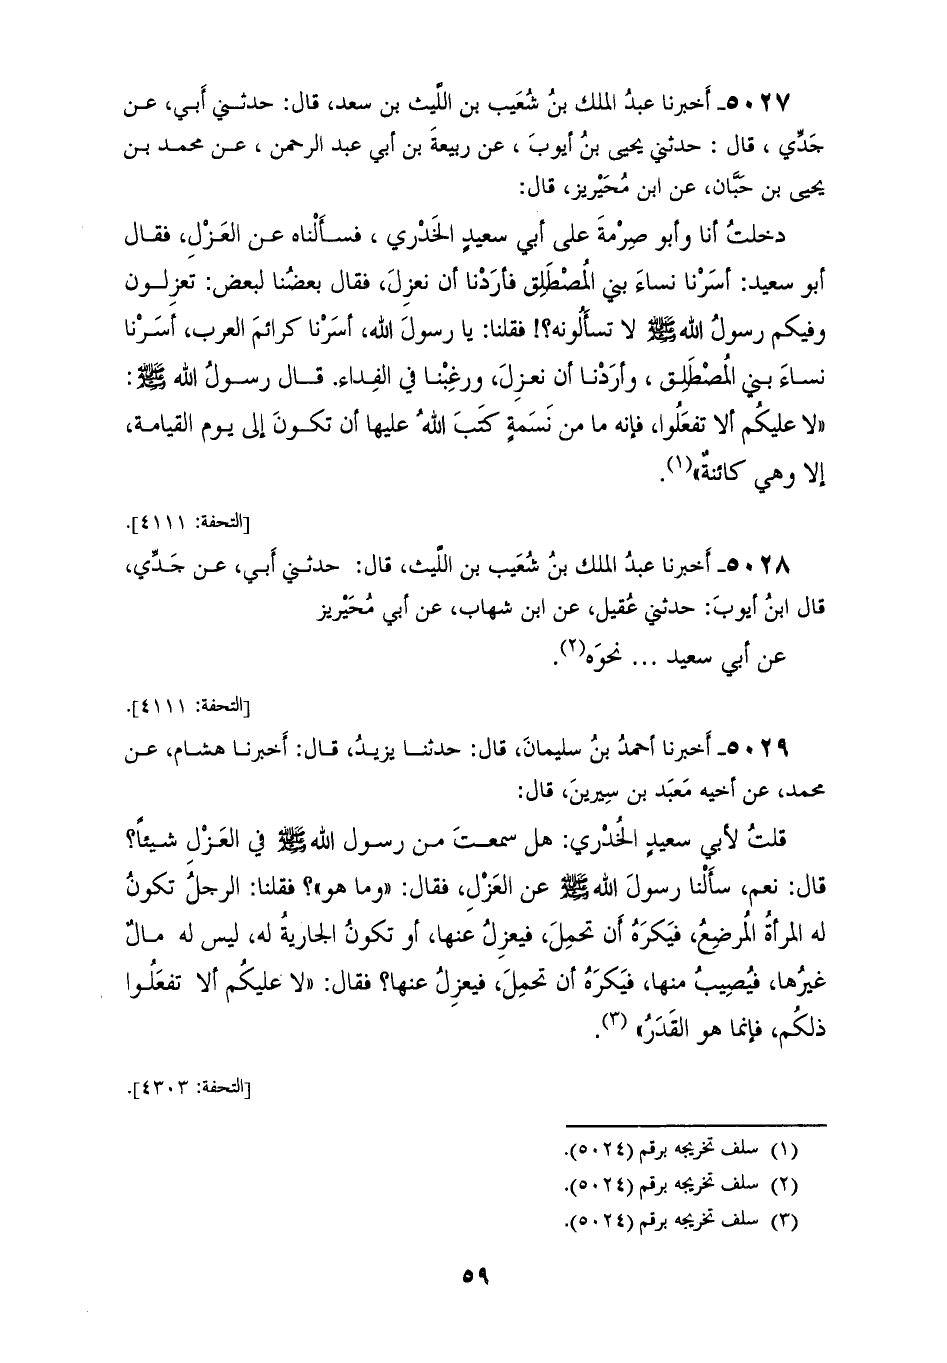 ٥٠٢٧ـ أَخبرنا عبدُ الملك بنُ شُعَيب بن اللَّيث بن سعد، قال: حدثني أَبي، عن
جَدِّي ، قال : حدثني يحيى بنُ أيوبَ ، عن ربيعةَ بن أبي عبد الرحمن ، عن محمد بن
يحيى بن حَبَّان، عن ابن مُحَيْريز، قال:
دخلتُ أنا وأبو صِرْمةَ على أبي سعيدٍ الخَدْري ، فسأَلْناه عن العَزْلِ، فقال
أبو سعيد: أسَرْنا نساءَ بني المُصْطَلِق فأرَدْنا أن نعزِلَ، فقال بعضُنا لبعض: تعزِلون
وفيكم رسولُ الله ﷺ لا تسأَلُونه؟! فقلنا: يا رسولَ الله، أسَرْنا كرائمَ العرب، أسَرْنا
نساءَ بني المُصْطَلِق ، وأرَدْنا أن نعزِلَ، ورغِبْنا في الفِداء. قال رسولُ الله ﷺ :
«لا عليكُم ألا تفعَلُوا، فإنه ما من نَسَمةٍ كتَبَ اللهُ عليها أن تكونَ إلى يوم القيامة،
إلا وهي كائنةٌ»(١).
[التحفة: ٤١١١].
٥٠٢٨ـ أَخبرنا عبدُ الملك بنُ شُعَيب بن اللَّيث، قال: حدثني أَبي، عن جَدِّي،
قال ابنُ أيوبَ: حدثني عُقيل، عن ابن شهاب، عن أبي مُحَيْريز
عن أبي سعيد ... نحوَه(٢).
[التحفة: ٤١١١].
٥٠٢٩ـ أَخبرنا أحمدُ بنُ سليمانَ، قال: حدثنا يزيدُ، قال: أَخبرنا هشام، عن
محمد، عن أخيه مَعبَد بن سِيرينَ، قال:
قلتُ لأبي سعيدٍ الخُدْري: هل سمعتَ من رسول الله ﷺ في العَزْلِ شيئاً؟
قال: نعم، سأَلْنا رسولَ الله ﷺ عن العَزْلِ، فقال: «وما هو»؟ فقلنا: الرجلُ تكونُ
له المرأةُ المُرضِعُ، فيَكرَهُ أَن تحمِلَ، فيعزِلُ عنها، أو تكونُ الجاريةُ له، ليس له مالٌ
غيرُها، فيُصِيبُ منها، فيَكرَهُ أن تحمِلَ، فيعزِلُ عنها؟ فقال: «لا عليكُم ألا تفعَلُوا
ذلكُم، فإنما هو القَدَرُ» (٣).
[التحفة: ٤٣٠٣].
(١) سلف تخريجه برقم (٥٠٢٤).
(٢) سلف تخريجه برقم (٥٠٢٤).
(٣) سلف تخريجه برقم (٥٠٢٤).
٥٩